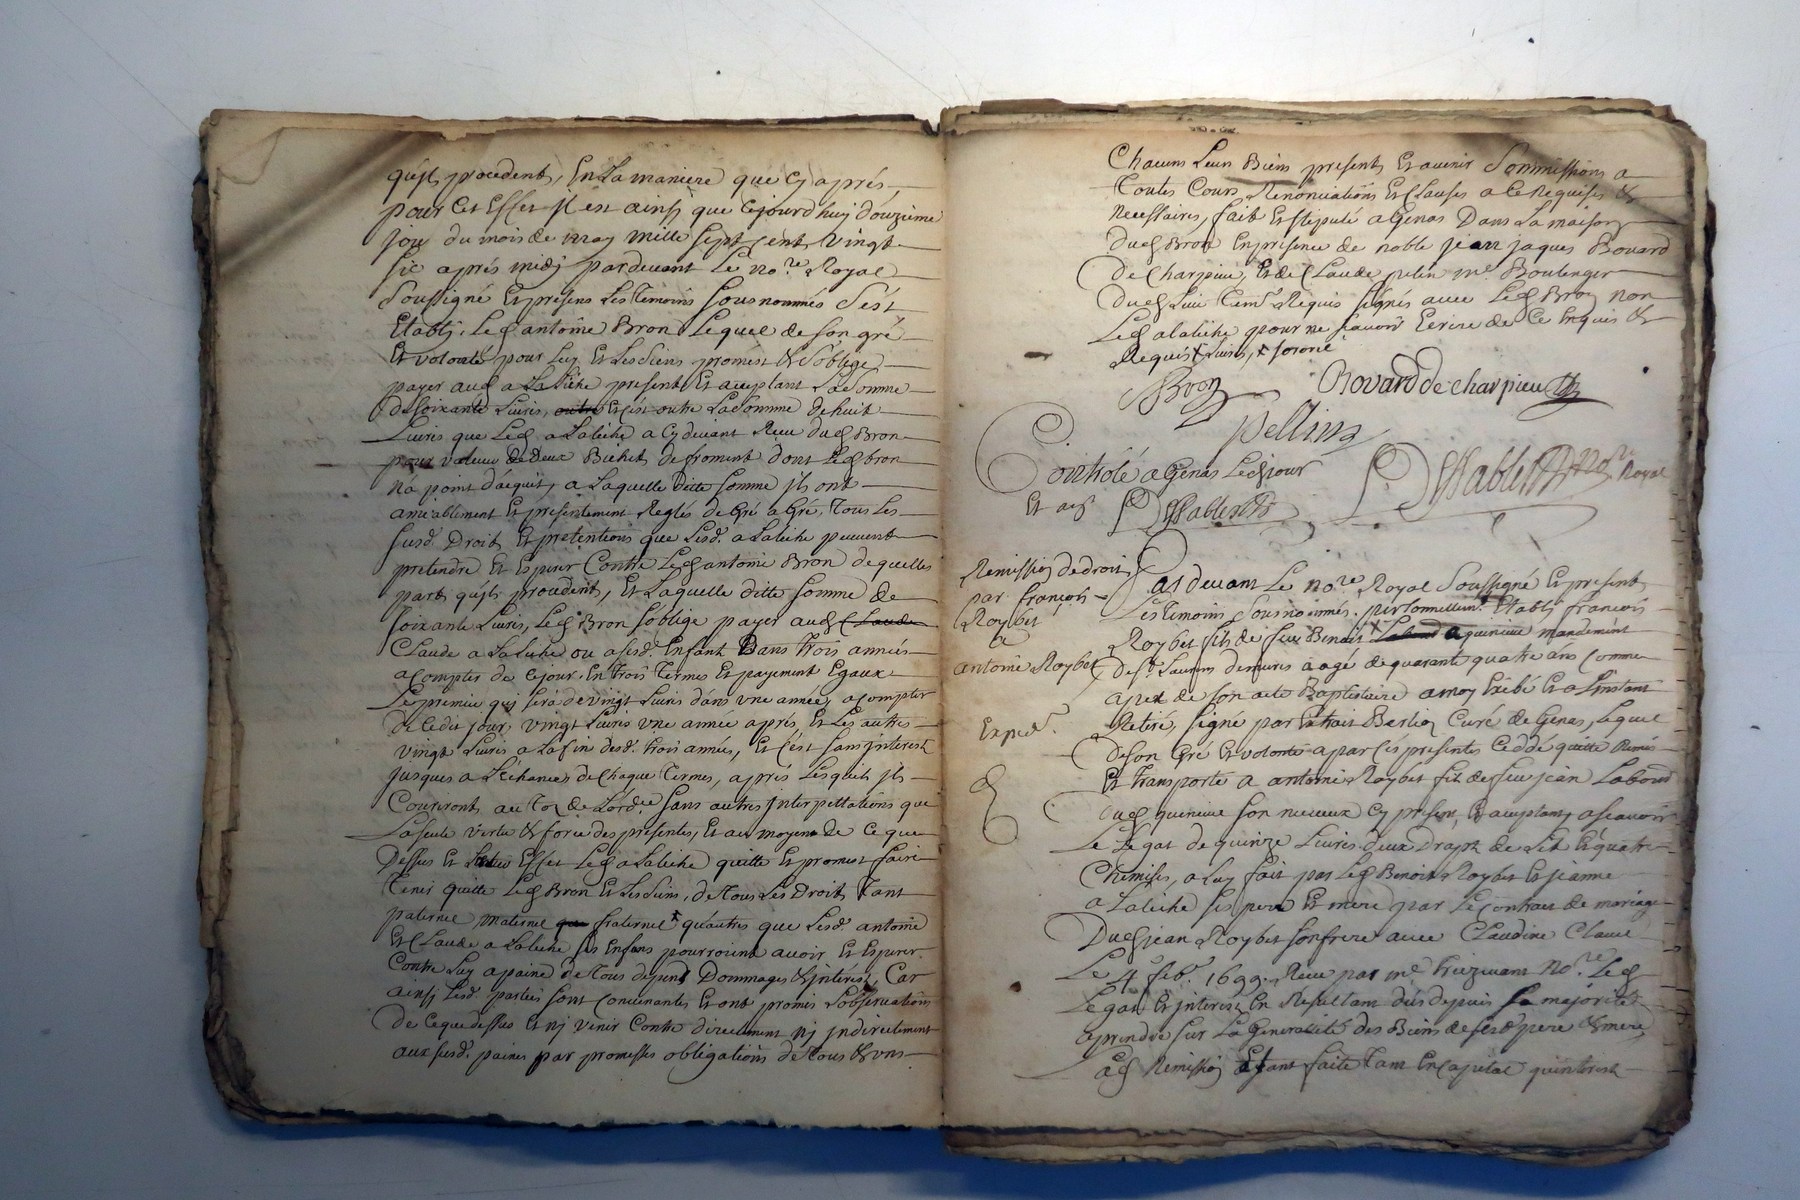 qu'ils procedent, En La maniere que Cy aprés,
pour Cet Effet Jl est ainsj que Cejourd'huy douzieme
jour du mois de may mille sept Cent vingt
six aprés midj pardevant Le no.re Royal
Soussigné Et presens Les Temoins sousnommés s'est
Etablj, Led antoine Bron Lequel de son gré
Et volonté pour Luy Et Les Siens promest & s'oblige
payer aud a Laliche present Et acceptant La somme
de soixante Livres, outre Et c'est outre La somme de huit
Livres que Led a Laliche a Cy devant Receu dud Bron
pour valeur de Deux Bichets de froment dont Led bron
n'a point d'acquit, a Laquelle ditte somme jls ont
amiablement Et presentement Reglés de Gré a Gré, Tous Les
susd. Droits Et pretentions que Lesd. a Laliche peuvent
pretendre Et Esperer Contre Led antoine Bron de quelles
parts qu'ils procedent, Et Laquelle ditte somme de
soixante Livres, Led Bron s'oblige payer aud Claude
Claude a Laliche ou a sesd. Enfant Dans Trois années
a Compter de Cejour, En Trois Termes Et payement Egaux
Le premier quj sera de vingt Livres dans une année, a Compter
De Cedit jour, vingt Livres une année aprés, Et Les autres
vingt Livres a La fin desd. trois années, Et C'est sans jnterest
jusques a L'echance de Chaque Termes, aprés Lesquels jls
Courront au de L'ord.ce sans autres jnterpettations que
La seule vertu & force des presentes, Et au moyen de Ce que
Dessus Et Effet Led a Laliche quitte Et promest faire
Tenir quitte Led Bron Et Les Siens, de Tous Les Droits Tant
paternel maternel que fraternel qu'autres que Lesd. antoine
Et Claude a Laliche ses Enfans pourroint avoir Et Esperer
Contre Luy a paine de Tous depens Dommages & jnterest, Car
ainsj Lesd. parties sont Convenantes Et ont promis L'observation
de Ceque dessus Et nj venir Contre directement nj jndirectement
aux susd. paines par promesses obligations de Tous & uns
Chacuns Leurs Biens presents Et avenir Sommissions a
Toutes Cours, Renonciations Et Clauses a Ce Requises &
necessaires, fait Et stipulé a Genas Dans La maison
Dud Bron En presence de noble jean jaques Bovard
De Charpieu, Et de Claude pelin m.e Boulenger
Dud Lieu Tem.s Requis signés avec Led Bron non
Led alaliche pour ne sçavoir Ecrire de Ce Enquis &
Requis
Bron Bovard de charpieu
pelling
Controlé a Genas Led jour
Royal
Et an
Remission de droits
par françois
Roybet
a
antoine Roybet
Exped.
Pardevant Le no.re Royal Soussigné Et present
Les Temoins sousnommés, personnellem.t Etablj françois
Roybet fils de feu Benoit Laboud a quinieu mandement
De s.t Laurens demures aagé de quarante quatre ans Comme
apert de son acte Baptistaire a moy Exibé Et a L'instant
Retiré, signé par Extrait Berlioz Curé de Genas, Lequel
De son Gré Et volonté a par Ces presentes Ceddé quitte Remis
Et transporté a antoine Roybet fils de feu jean Laboud
Dud quinieu son neveux Cy present, Et acceptant, asçavoir
Le Legat de quinze Livres deux Draps de Lit Et quatre
Chemises, a Luy fait par Led Benoit Roybet Et jeanne
a Laliche ses pere Et mere par Le Contract de mariage
Dud jean Roybet son frere avec Claudine Clavel
Le 4.e feb.r 1699. Receu par m.e no.re Led
Legat Et jnterest En Resultant dus depuis sa majorité
a prendre sur La Generalité des Biens de sesd. pere & mere
Lad Remission Etant faite Tant En Capital qu'interest